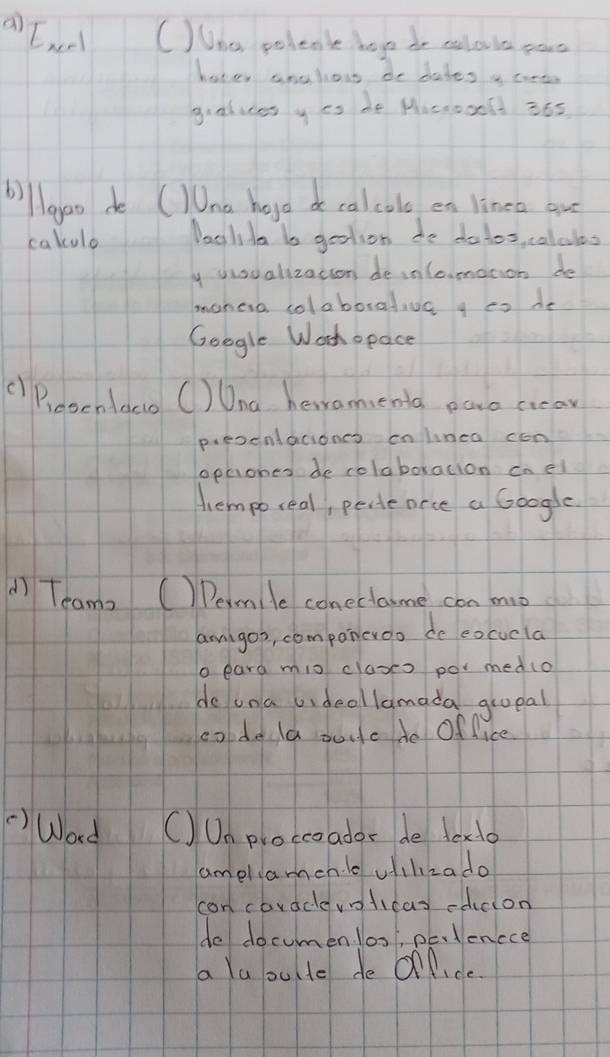 a) Excel ( ) Una potente hoja de calculo para
hacer analisis de datos y crear
graficos y es de Microsoft 365
b) Hojas de ( ) Una hoja de calculo en linea que
calculo facilita la gestion de datos, calculos
y visualizacion de informacion de
manera colaborativa y es de
Google Workspace
c) Presentacio ( ) Una herramienta para crear
presentaciones en linea con
opciones de colaboracion en el
tiempo real, pertenece a Google.
d) Teams ( ) Permite conectarme con mis
amigos, compañeros de escuela
o para mis clases por medio
de una videollamada grupal
es de la suite de Office.
e) Word ( ) Un procesador de texto
ampliamente utilizado
con caracteristicas edicion
de documentos; pertenece
a la suite de Office.